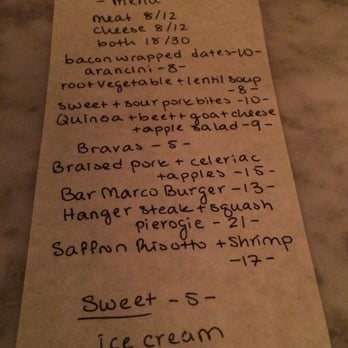 - menu
meat 8/12
cheese 8/12
both 18/30
bacon wrapped dates -10-
arancini -8-
root vegetable + lentil soup
-8-
sweet + sour pork bites -10-
Quinoa + beet + goat cheese
+ apple salad -9-
Bravas -5-
Braised pork + celeriac
+ apples -15-
Bar Marco Burger -13-
Hanger steak + squash
pierogie -21-
Saffron Risotto + Shrimp
-17-
Sweet -5-
ice cream